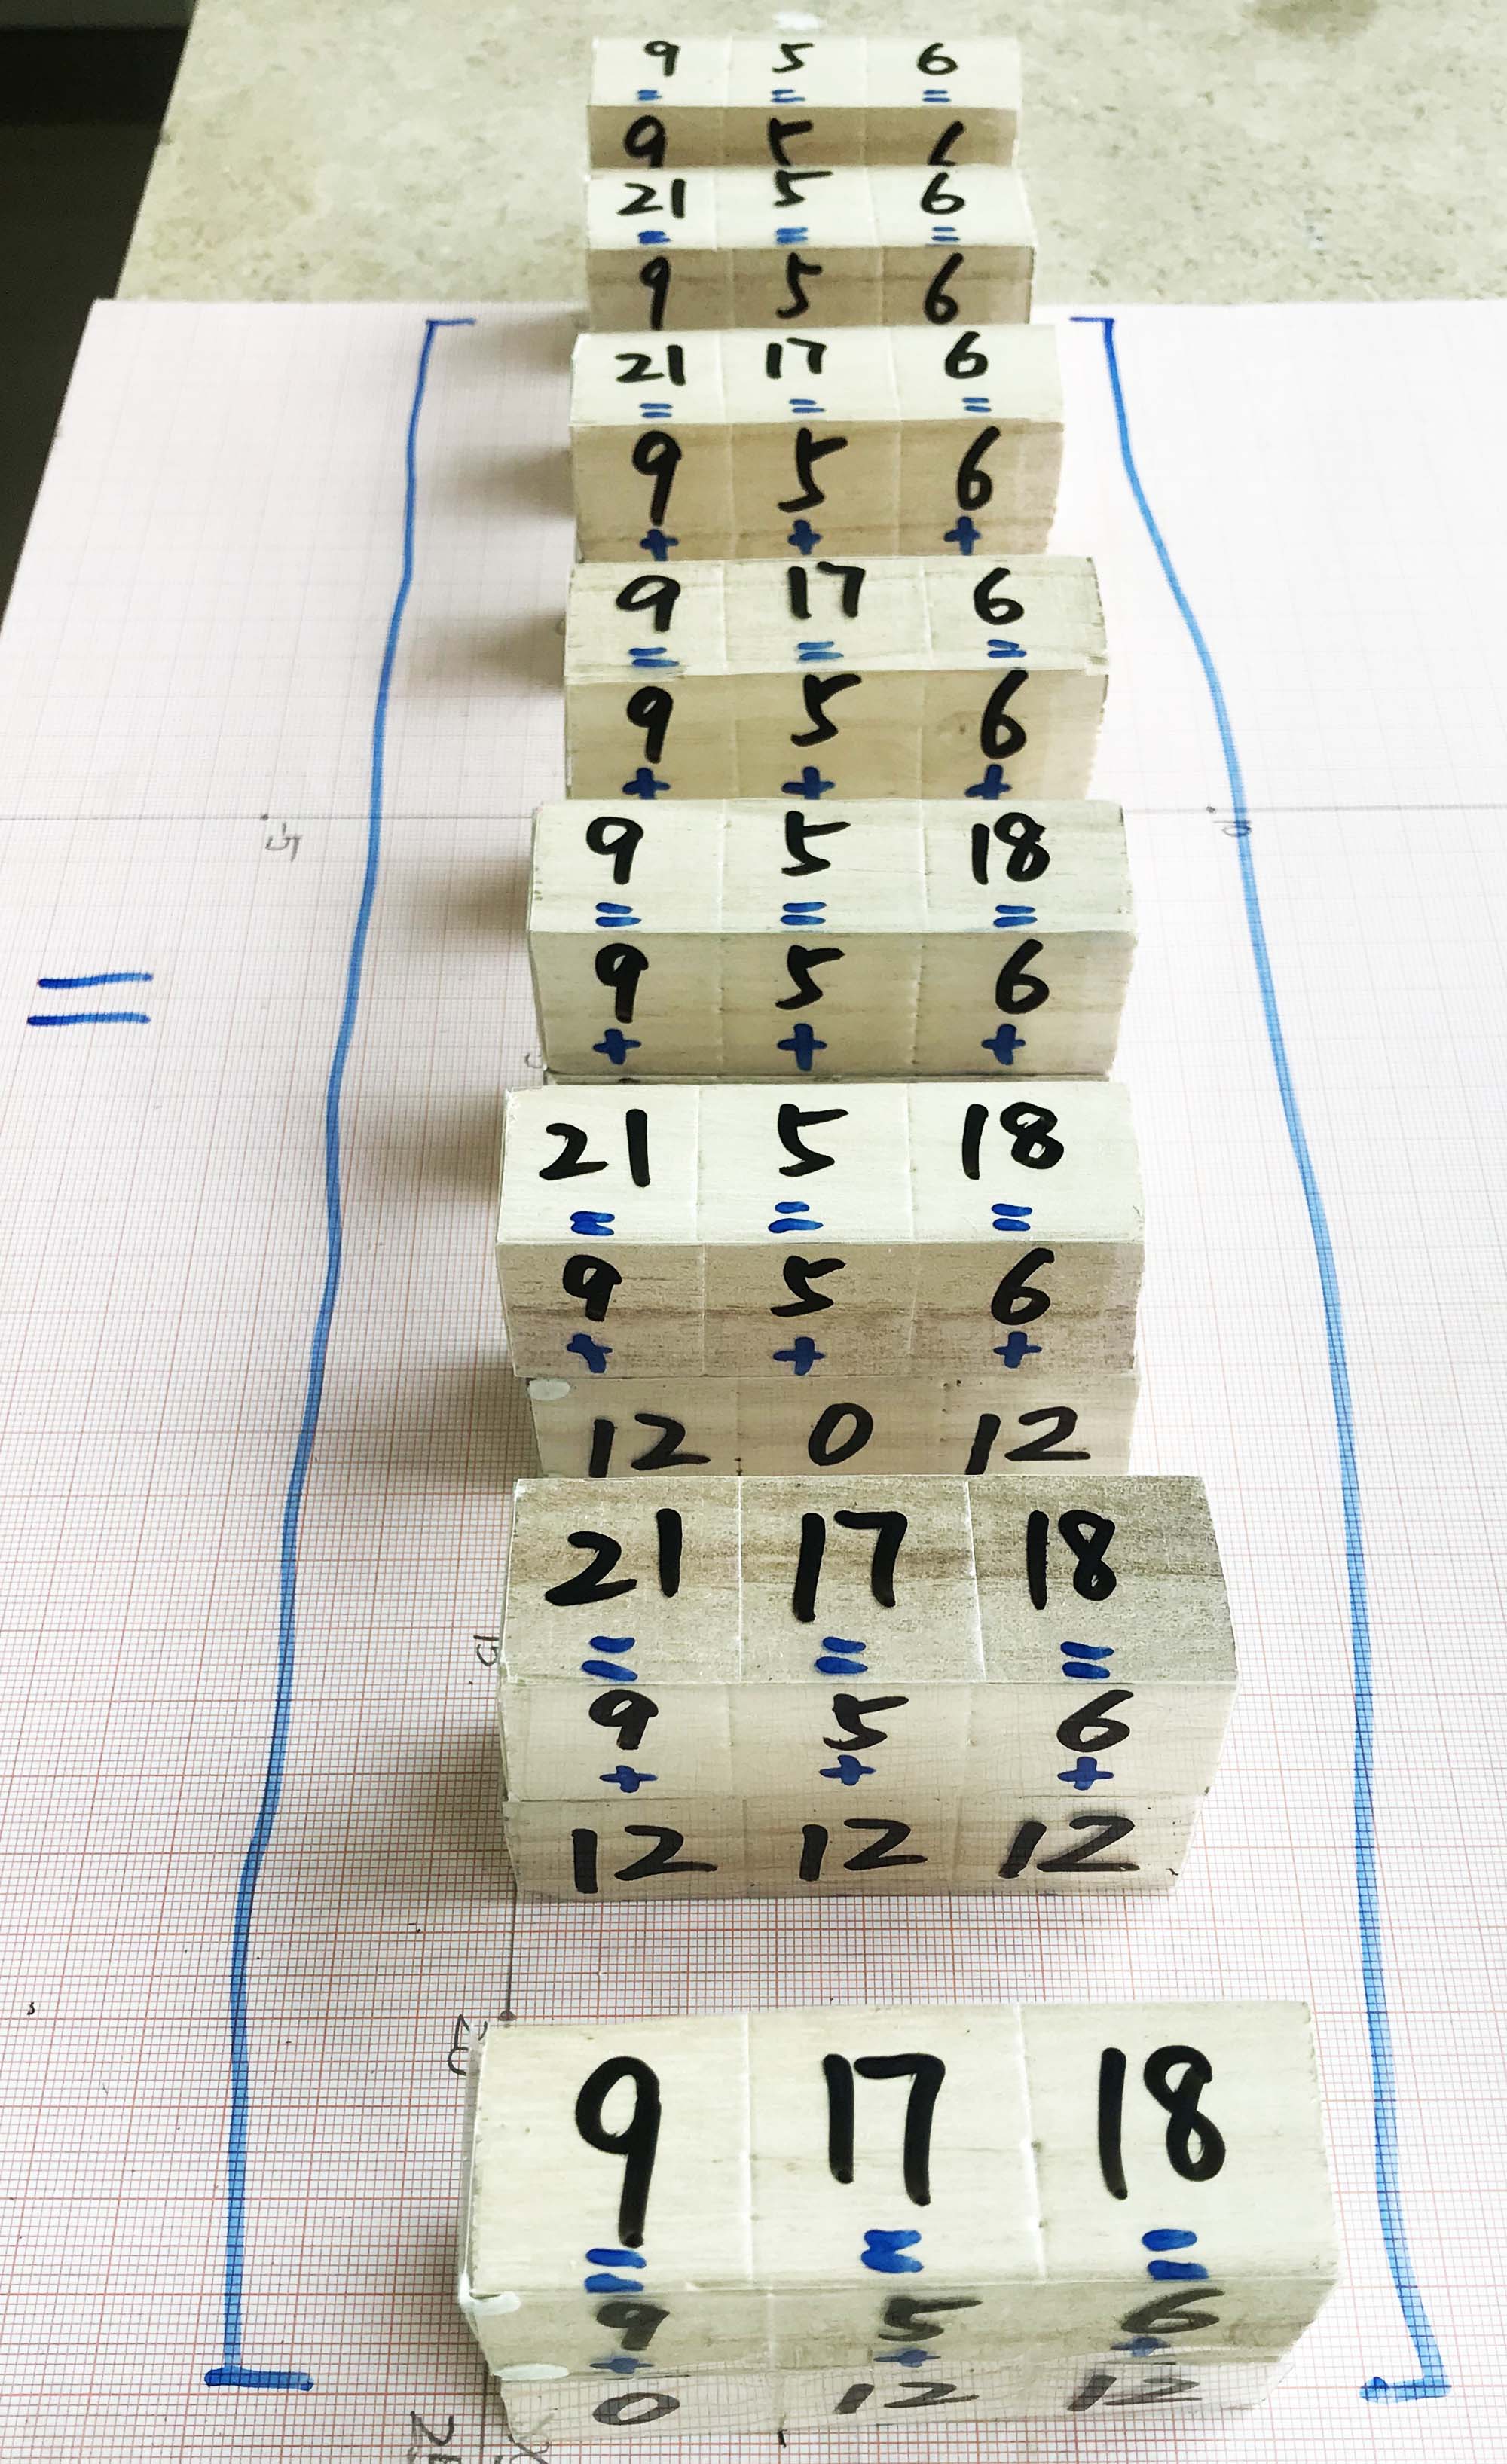 9 5 6
= = =
9 5
21 5 6
= = =
9 5 6
21 17 6
= = =
9 5 6
+ + +
9 17 6
= = =
9 5 6
+ + +
9 5 18
= = =
9 5 6
+ + +
=
21 5 18
= = =
9 5 6
+ + +
12 0 12
21 17 18
= = =
9 5 6
+ + +
12 12 12
9 17 18
= = =
9 5 6
+ + +
0 12 12